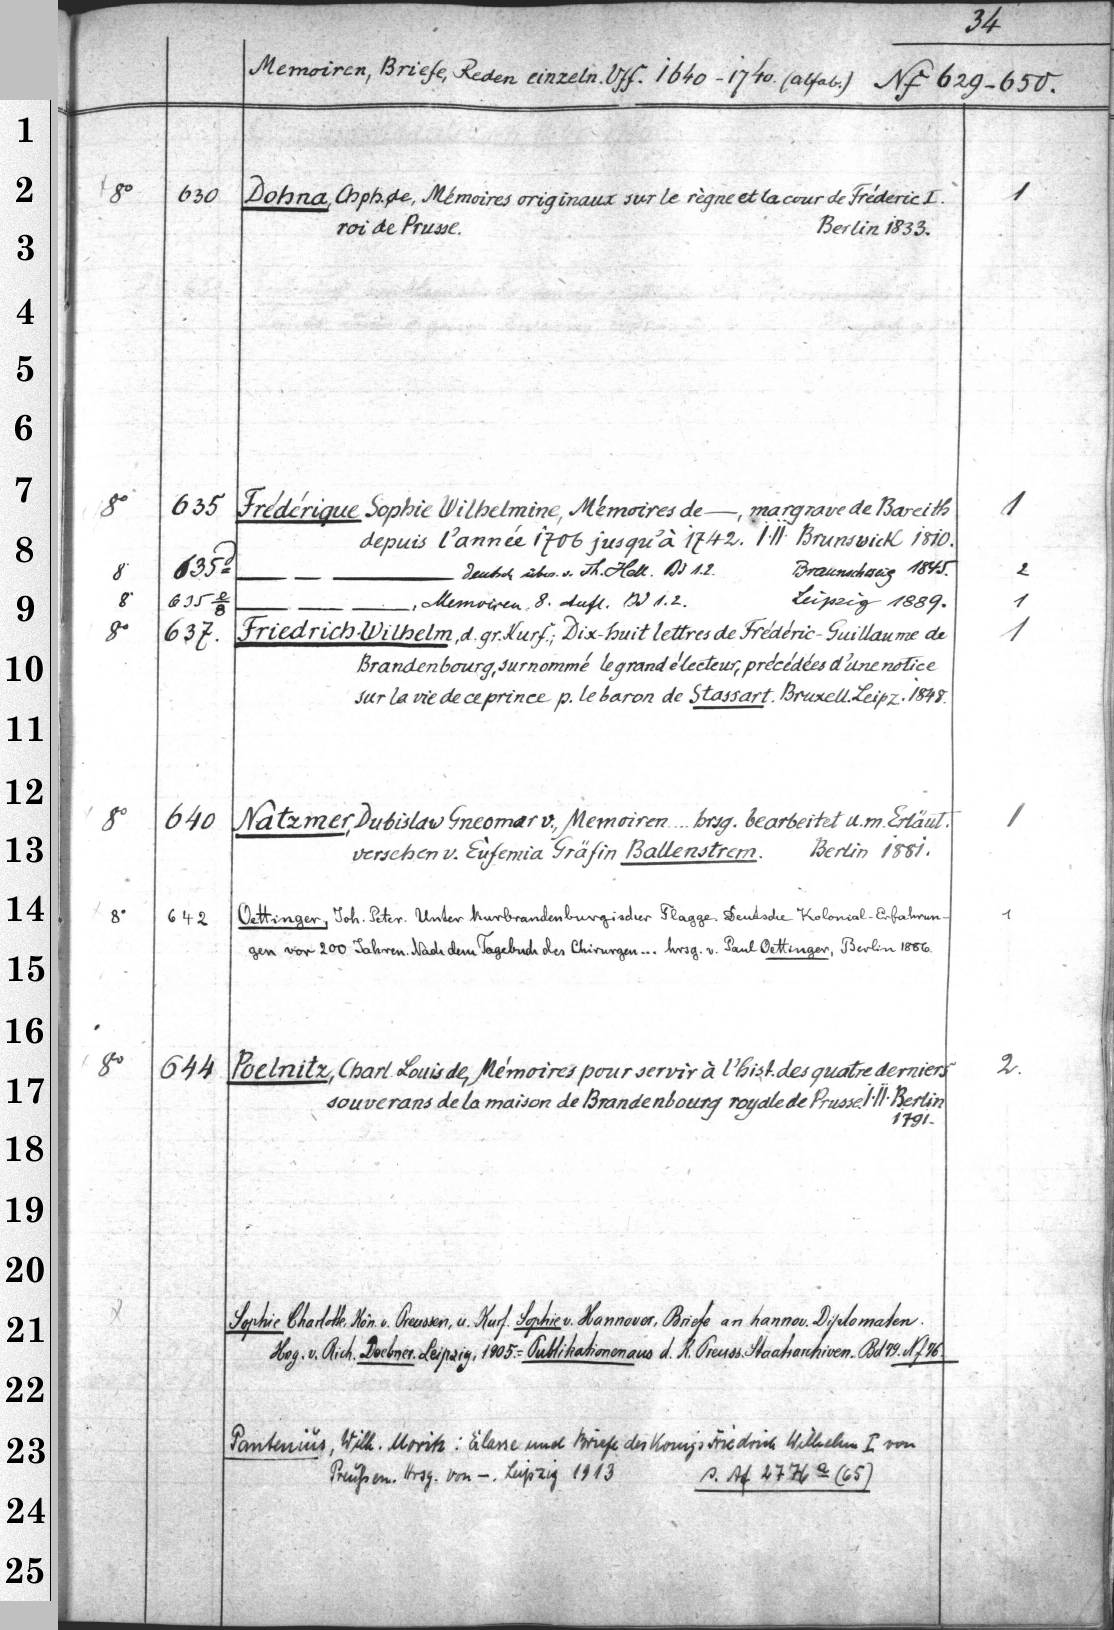 34
Memoiren, Briefe, Reden einzeln. Vff. 1640-1740. (alfab.) Nf 629-650.
1
2
8° 630 Dohna, Chph. de, Mémoires originaux sur le règne et la cour de Fréderic I. 1
roi de Prusse. Berlin 1833.
3
4
5
6
7
8° 635 Frédérique Sophie Wilhelmine, Mémoires de —, margrave de Bareith 1
depuis l'année 1706 jusqu'à 1742. I.II. Brunswick 1810.
8
8 635 a — — — deutsch übers. v. Th. Hell. Bd 1.2. Braunschweig 1845. 2
9
8 635 e/8 — — —, Memoiren, 8. Aufl. Bd 1.2. Leipzig 1889. 1
8° 637. Friedrich Wilhelm, d. gr. Kurf.; Dix-huit lettres de Frédéric-Guillaume de 1
10
Brandenbourg, surnommé le grand électeur, précédées d'une notice
sur la vie de ce prince p. le baron de Stassart. Bruxell. Leipz. 1848.
11
12
8° 640 Natzmer, Dubislaw Gneomar v., Memoiren ... hrsg. bearbeitet u. m. Erläut. 1
13
versehen v. Eufemia Gräfin Ballenstrem. Berlin 1881.
14
8° 642 Oettinger, Joh. Peter. Unter kurbrandenburgischer Flagge. Deutsche Kolonial-Erfahrun- 1
gen vor 200 Jahren. Nach dem Tagebuch des Chirurgen ... hrsg. v. Paul Oettinger, Berlin 1886.
15
16
8° 644 Poelnitz, Charl. Louis de, Mémoires pour servir à l'hist. des quatre derniers 2.
17
souverans de la maison de Brandenbourg royale de Prusse. I.II. Berlin
1791.
18
19
20
21
Sophie Charlotte, Kön. v. Preussen, u. Kurf. Sophie v. Hannover, Briefe an hannov. Diplomaten.
Hsg. v. Rich. Doebner. Leipzig, 1905. = Publikationen aus d. K. Preuss. Staatsarchiven. Bd 79. Nf 76
22
23
Pantenius, Wilh. Moritz: Erlasse und Briefe des Königs Friedrich Wilhelm I von
Preußen. Hrsg. von —. Leipzig 1913 s. Af 2776 a (65)
24
25